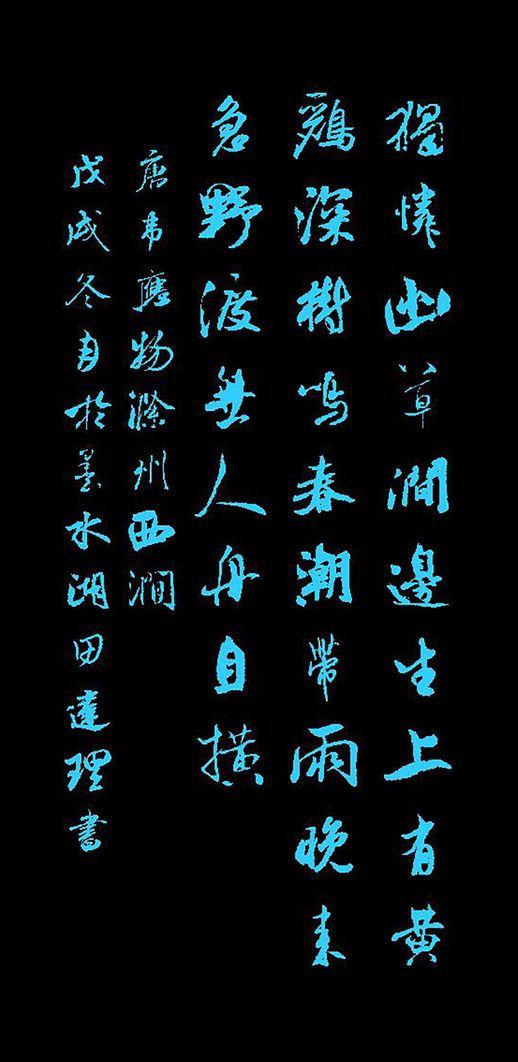 獨憐幽草澗邊生上有黄
鸝深樹鳴春潮帶雨晚来
急野渡無人舟自横
唐韦應物滁州西澗
戊戌冬月於墨水湖田達理書